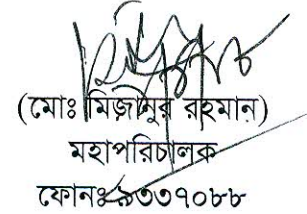 (মোঃ মিজানুর রহমান)
মহাপরিচালক
ফোনঃ ৯৩৩৭০৮৮